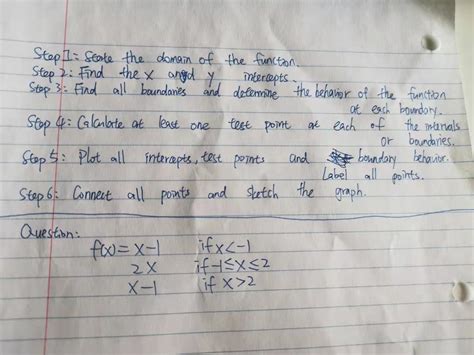 Step 1: State the domain of the function.
Step 2: Find the x and y intercepts.
Step 3: Find all boundaries and determine the behavior of the function
at each boundary.
Step 4: Calculate at least one test point at each of the intervals
or boundaries.
Step 5: Plot all intercepts, test points and boundary behavior.
Label all points.
Step 6: Connect all points and sketch the graph.
Question:
f(x) = x-1 if x<-1
2x if -1≤x≤2
x-1 if x>2